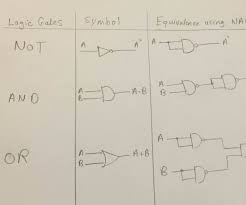 Logic Gates Symbol Equivalence using NA
NOT A A' A A'
AND A B A-B A B
OR A B A+B A B